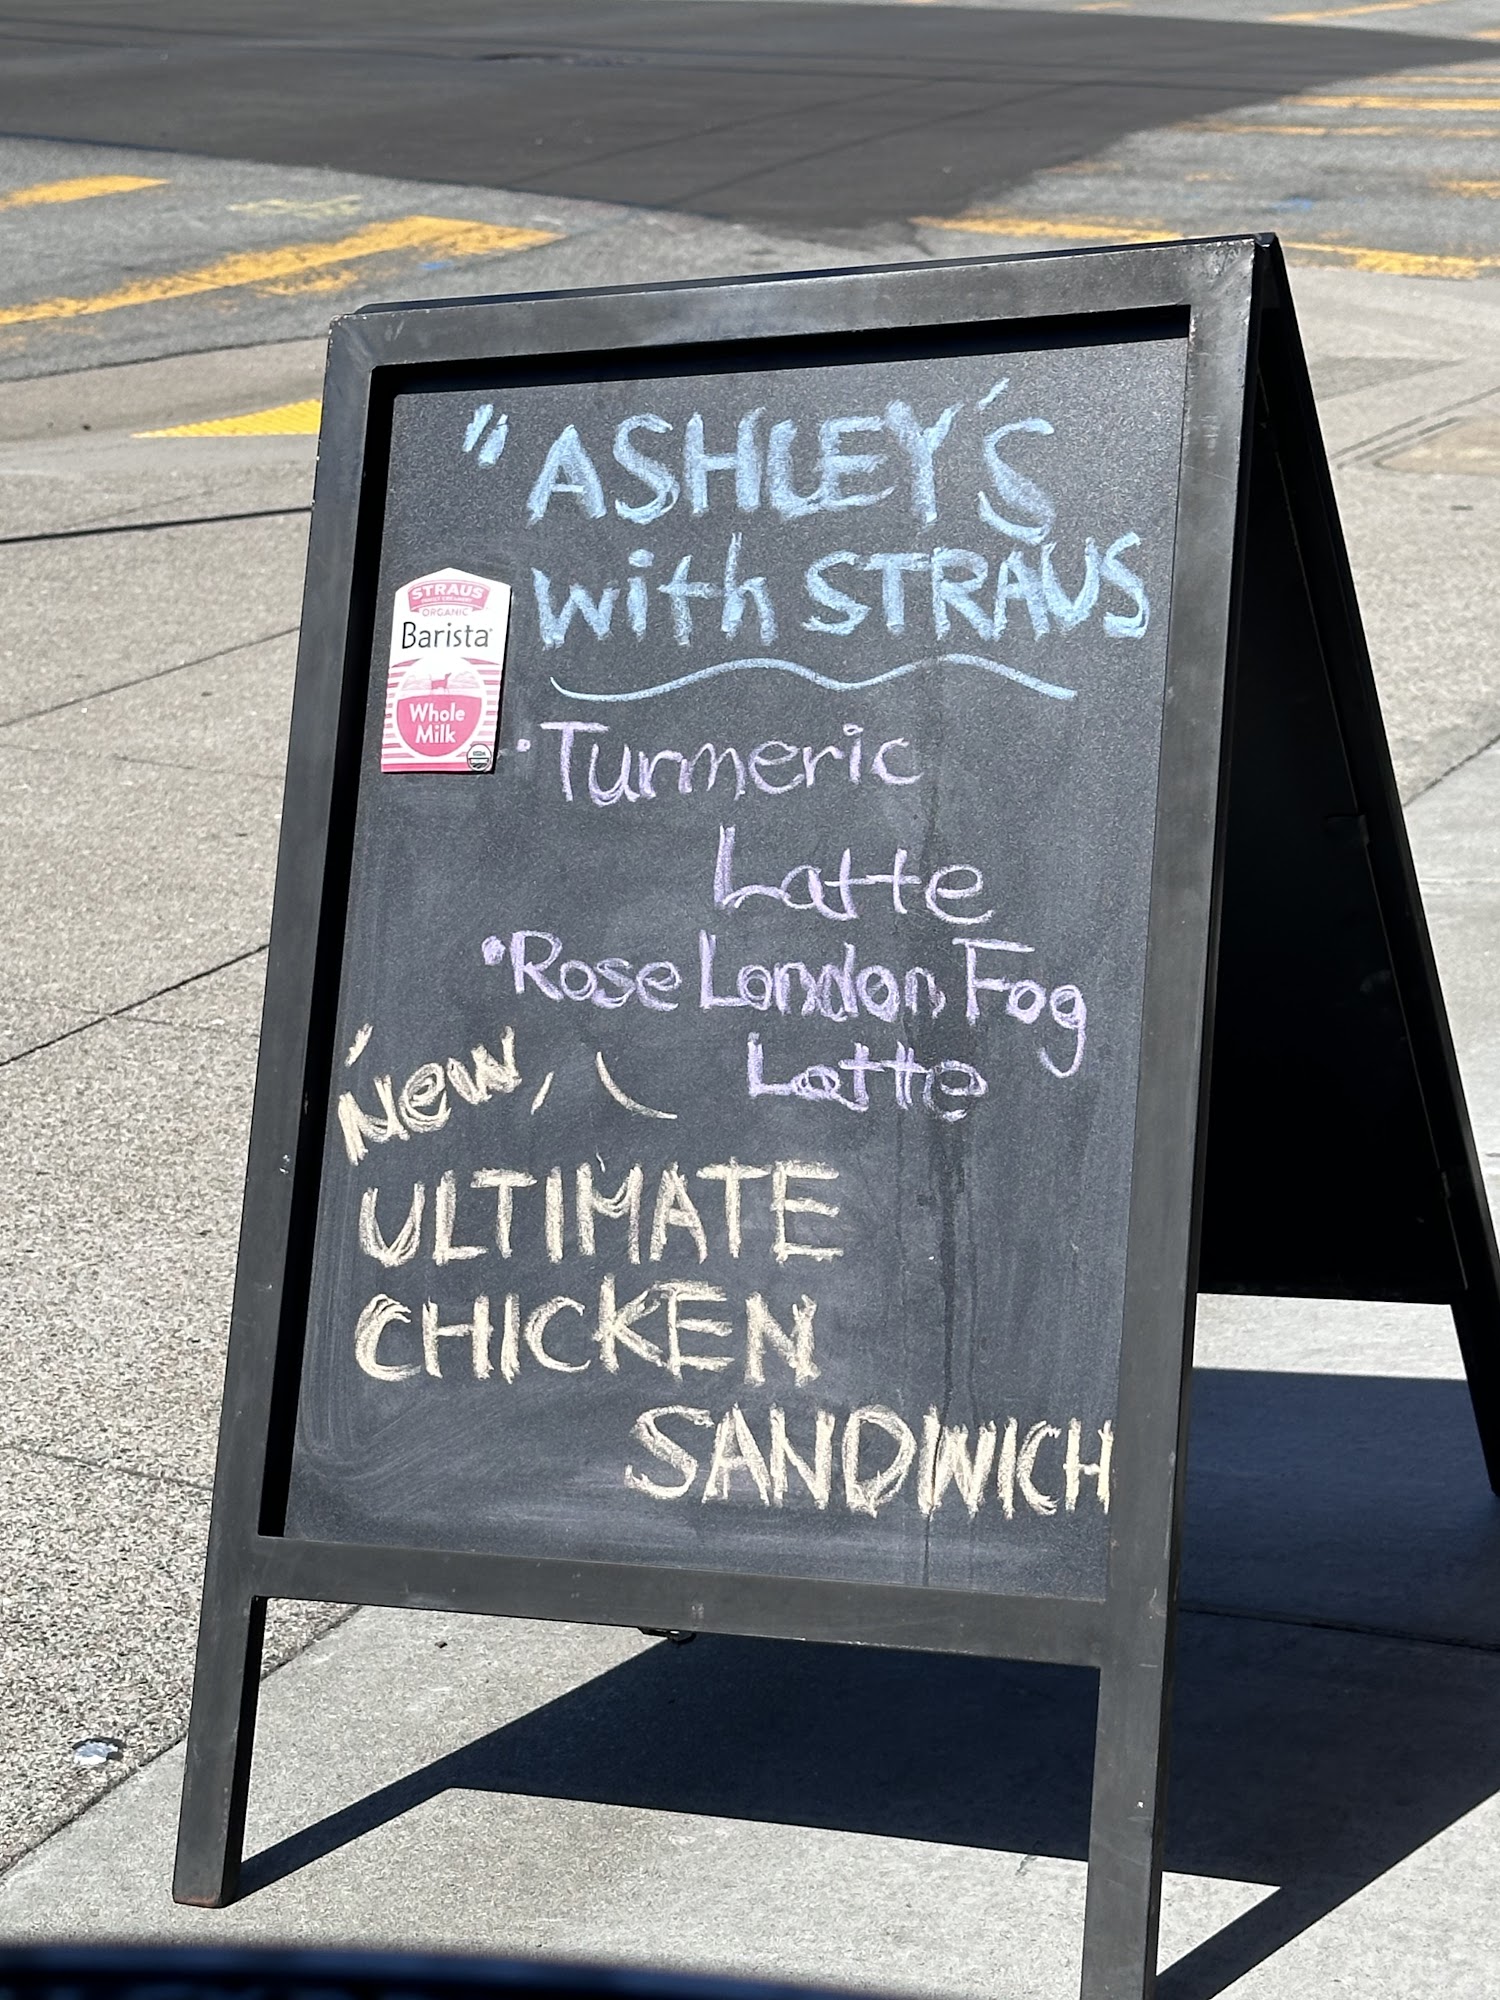 "ASHLEY'S
with STRAUS
STRAUS
FAMILY CREAMERY
ORGANIC
Barista
Whole
Milk
USDA
ORGANIC
• Turmeric
Latte
• Rose London Fog
Latte
New
ULTIMATE
CHICKEN
SANDWICH